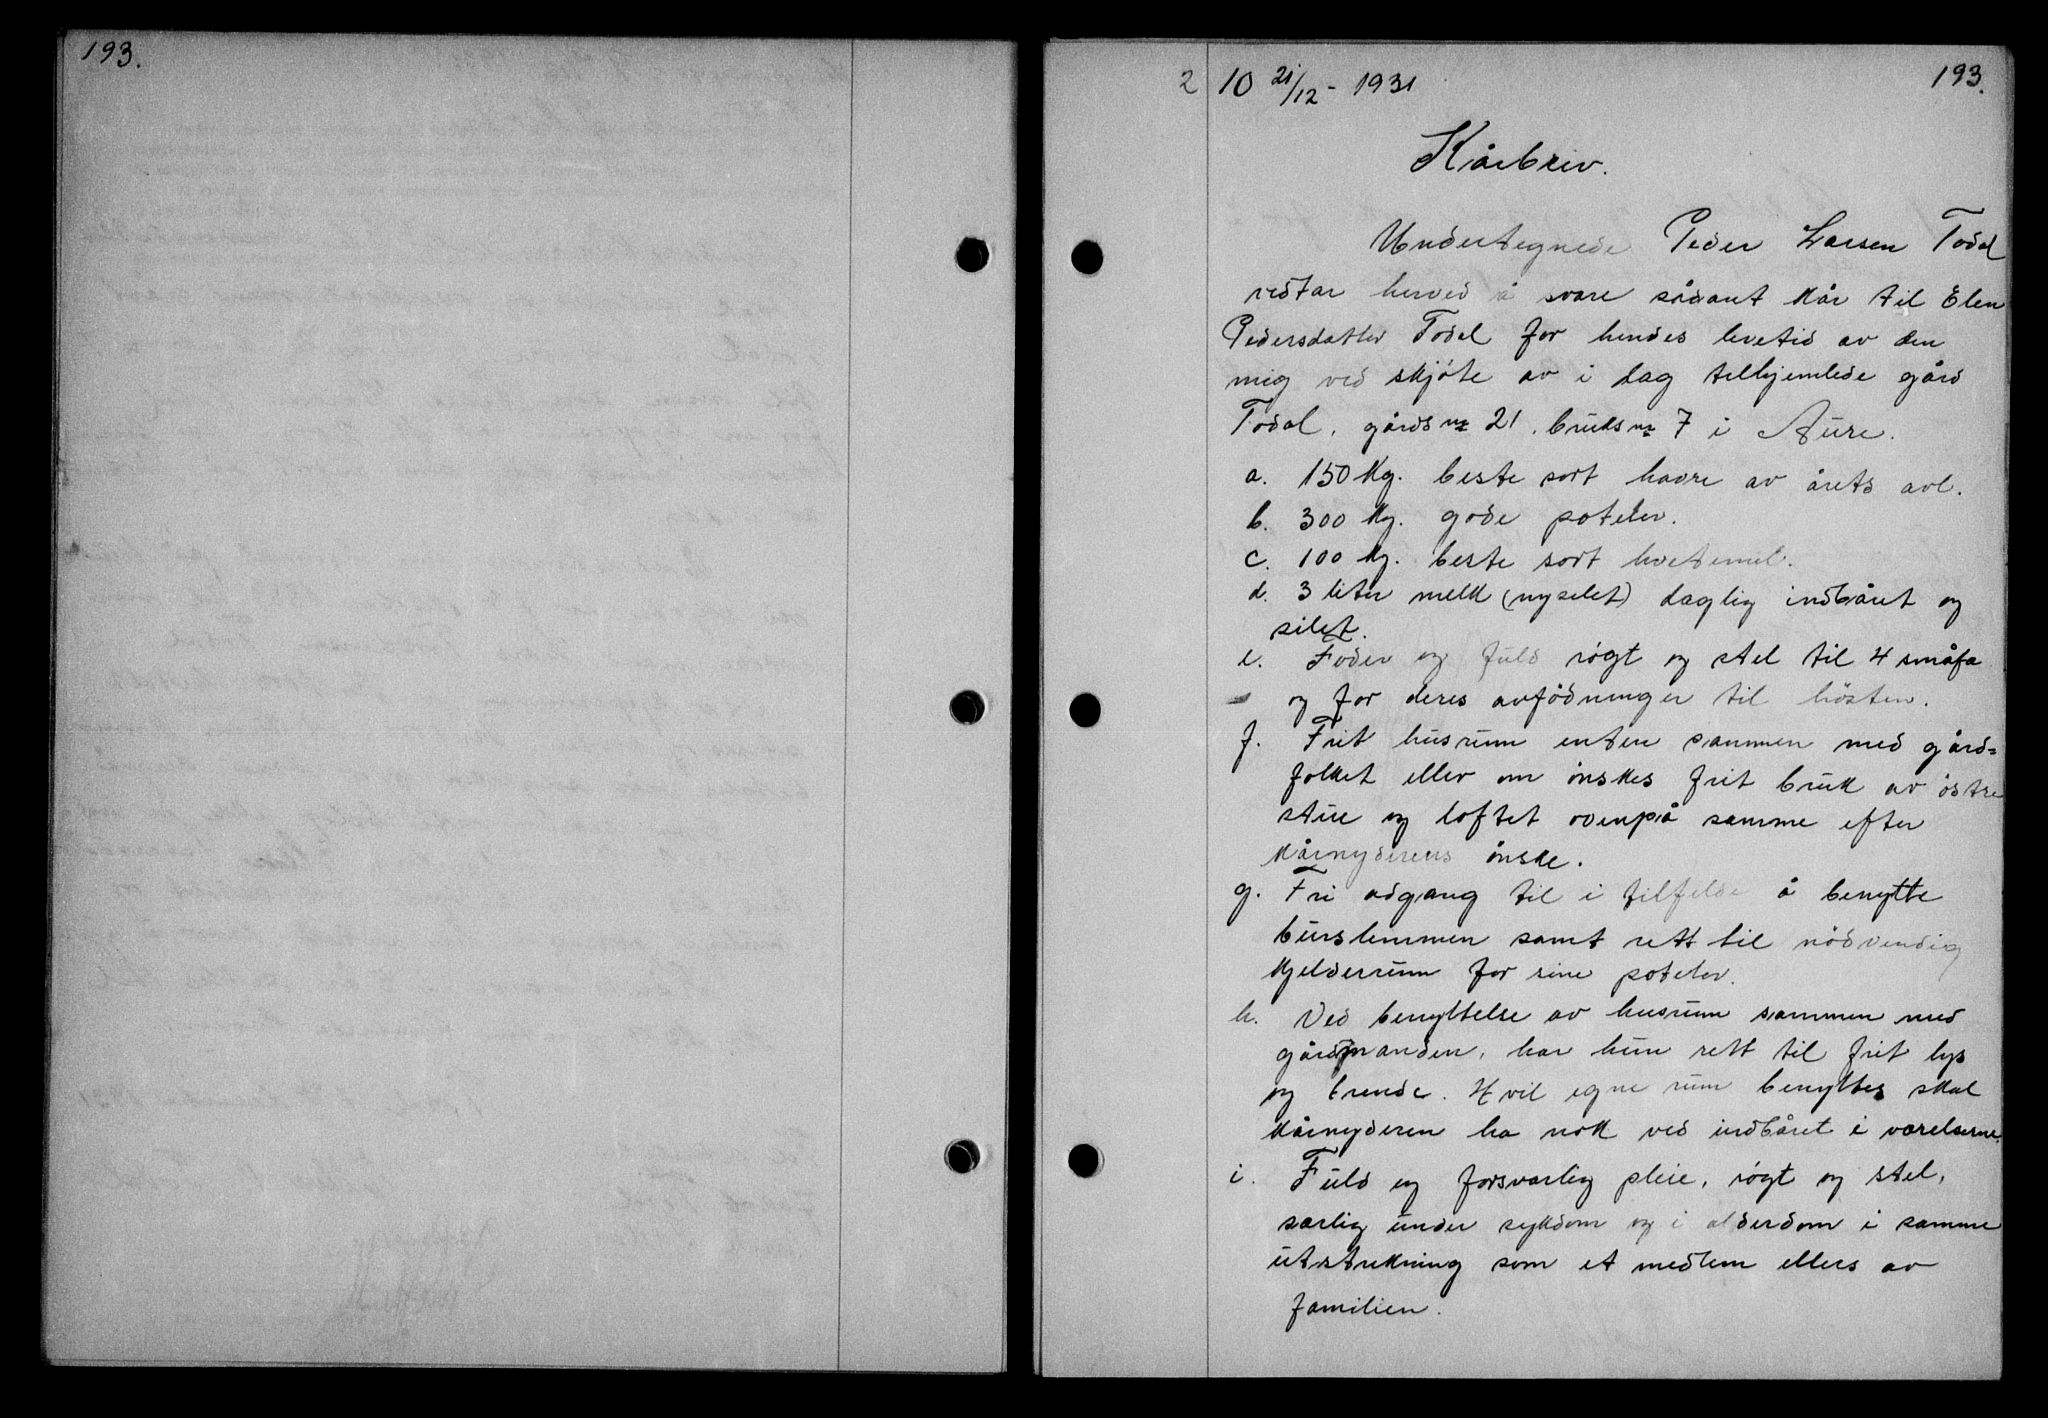 193.
2 10 21/12 - 1931
193.
Kårbrev.
Undertegnede Peder Larsen Todal
vedtar herved å svare sådant kår til Elen
Pedersdatter Todal for hendes levetid av den
mig ved skjøte av i dag tilhjemlede gård
Todal, gårds nr 21, bruks nr 7 i Aure.
a. 150 kg. beste sort havre av årets avl.
b. 300 kg. gode poteter.
c. 100 kg. beste sort hvetemel.
d. 3 liter melk (nysilet) daglig indbåret og
silet.
e. Foder og fuld røgt og stel til 4 småfa
og for deres avfødninger til høsten.
f. Frit husrum enten sammen med gård=
folket eller om ønskes frit bruk av østre
stue og loftet ovenpå samme efter
kårnyderens ønske.
g. Fri adgang til i tilfelde å benytte
burslemmen samt rett til nødvendig
kjelderrum for sine poteter.
h. Ved benyttelse av husrum sammen med
gårdmanden, har hun rett til frit lys
og brende. Hvil egne rum benyttes skal
kårnyderen ha nok ved indbåret i værelserne.
i. Fuld og forsvarlig pleie, røgt og stel,
særlig under sykdom og i alderdom i samme
utstrekning som et medlem ellers av
familien.